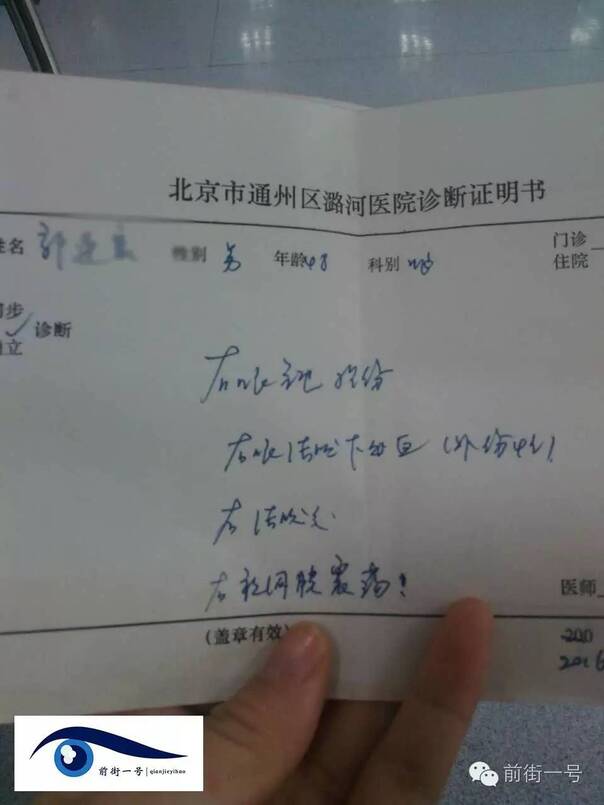 北京市通州区潞河医院诊断证明书
姓名 郭 性别 男 年龄48 科别 眼 门诊
住院
初步
诊断
确立
右眼 挫伤
右眼结膜下出血（外伤性）
右结膜炎
右视网膜震荡！
医师
(盖章有效)
200
2016
前街一号 | qianjieyihao
前街一号